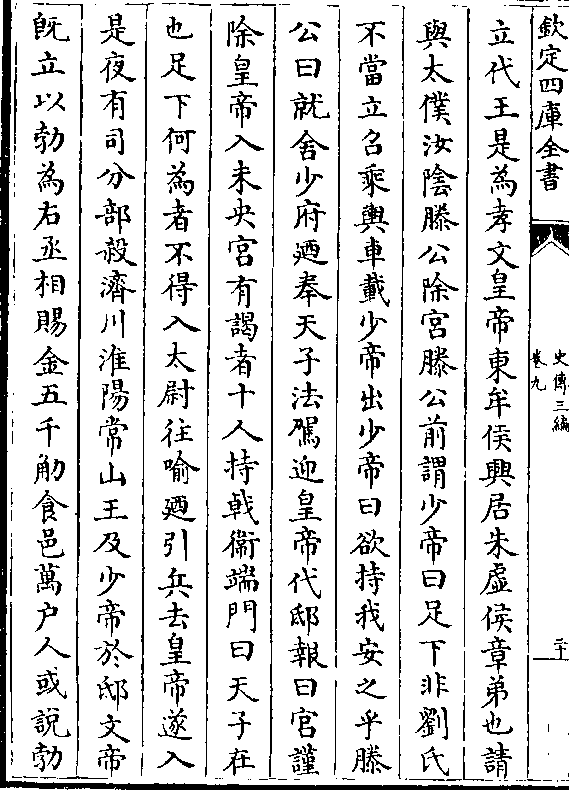 欽定四庫全書
史傳三編
卷九
二十
立代王是為孝文皇帝東牟侯興居朱虛侯章弟也請
與太僕汝陰滕公除宮滕公前謂少帝曰足下非劉氏
不當立召乘輿車載少帝出少帝曰欲持我安之乎滕
公曰就舍少府廼奉天子法駕迎皇帝代邸報曰宮謹
除皇帝入未央宮有謁者十人持戟衞端門曰天子在
也足下何為者不得入太尉往喻廼引兵去皇帝遂入
是夜有司分部殺濟川淮陽常山王及少帝於邸文帝
旣立以勃為右丞相賜金五千觔食邑萬户人或說勃